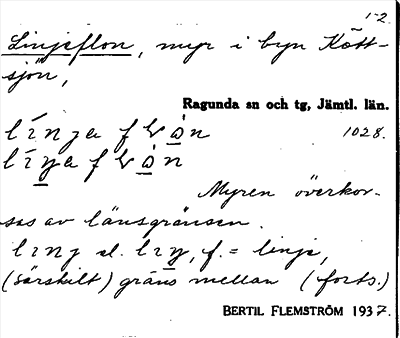 1-2.
Linjeflon, myr i byn Kött-
sjön,
Ragunda sn och tg, Jämtl. län.
1028.
Myren överkor-
sas av länsgränsen.
el. f. = linje,
(särskilt) gräns mellan (forts.)
BERTIL FLEMSTRÖM 1937.